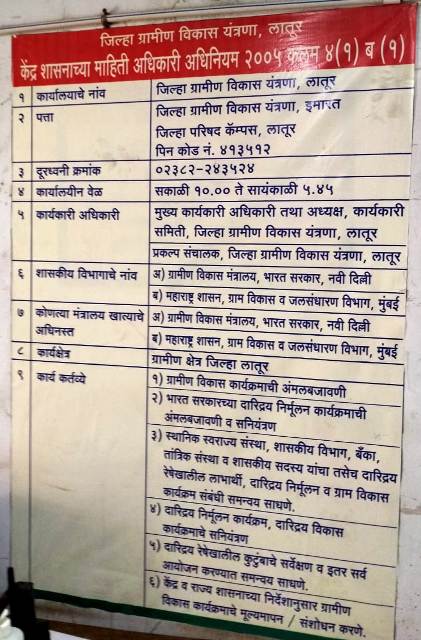 जिल्हा ग्रामीण विकास यंत्रणा, लातूर
केंद्र शासनाच्या माहिती अधिकारी अधिनियम २००५ कलम ४(१) ब (१)
१ कार्यालयाचे नांव जिल्हा ग्रामीण विकास यंत्रणा, लातूर
२ पत्ता जिल्हा ग्रामीण विकास यंत्रणा, इमारत
जिल्हा परिषद कॅम्पस, लातूर
पिन कोड नं. ४१३५१२
३ दूरध्वनी क्रमांक ०२३८२-२४३५२४
४ कार्यालयीन वेळ सकाळी १०.०० ते सायंकाळी ५.४५
५ कार्यकारी अधिकारी मुख्य कार्यकारी अधिकारी तथा अध्यक्ष, कार्यकारी
समिती, जिल्हा ग्रामीण विकास यंत्रणा, लातूर
प्रकल्प संचालक, जिल्हा ग्रामीण विकास यंत्रणा, लातूर
६ शासकीय विभागाचे नांव अ) ग्रामीण विकास मंत्रालय, भारत सरकार, नवी दिल्ली
ब) महाराष्ट्र शासन, ग्राम विकास व जलसंधारण विभाग, मुंबई
७ कोणत्या मंत्रालय खात्याचे अ) ग्रामीण विकास मंत्रालय, भारत सरकार, नवी दिल्ली
अधिनस्त ब) महाराष्ट्र शासन, ग्राम विकास व जलसंधारण विभाग, मुंबई
८ कार्यक्षेत्र ग्रामीण क्षेत्र जिल्हा लातूर
९ कार्य कर्तव्ये १) ग्रामीण विकास कार्यक्रमाची अंमलबजावणी
२) भारत सरकारच्या दारिद्रय निर्मूलन कार्यक्रमाची
अंमलबजावणी व सनियंत्रण
३) स्थानिक स्वराज्य संस्था, शासकीय विभाग, बँका,
तांत्रिक संस्था व शासकीय सदस्य यांचा तसेच दारिद्रय
रेषेखालील लाभार्थी, दारिद्रय निर्मूलन व ग्राम विकास
कार्यक्रम संबंधी समन्वय साधणे.
४) दारिद्रय निर्मूलन कार्यक्रम, दारिद्रय विकास
कार्यक्रमाचे सनियंत्रण
५) दारिद्रय रेषेखालील कुटुंबाचे सर्वेक्षण व इतर सर्व
आयोजन करण्यात समन्वय साधणे.
६) केंद्र व राज्य शासनाच्या निर्देशानुसार ग्रामीण
विकास कार्यक्रमाचे मूल्यमापन / संशोधन करणे.